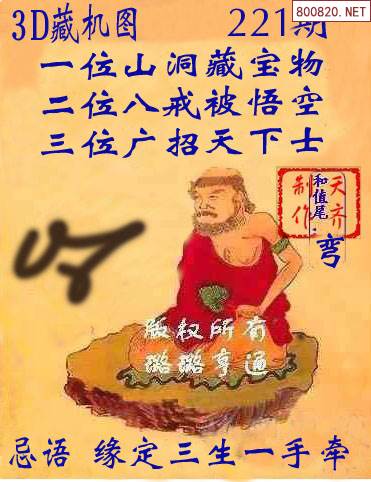 800820.NET
3D藏机图 221期
一位山洞藏宝物
二位八戒被悟空
三位广招天下士
天齐
制作
和值尾
弯
版权所有
璐璐亨通
忌语 缘定三生一手牵